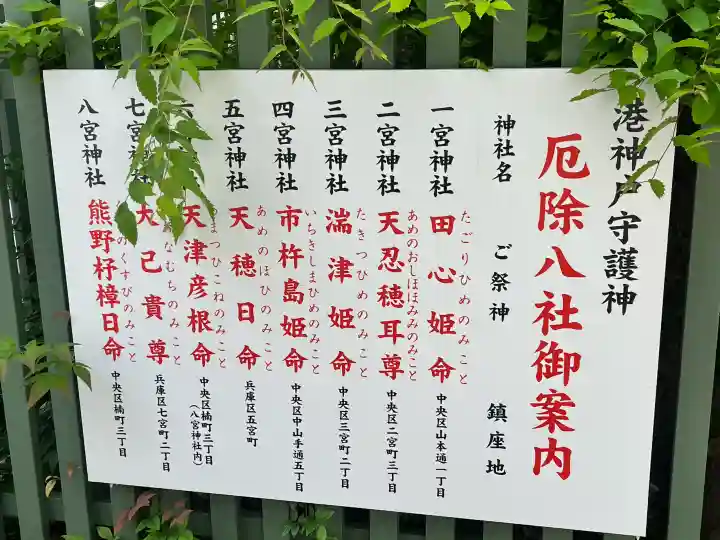 港神戸守護神
厄除八社御案内
神社名 ご祭神 鎮座地
一宮神社 田心姫命 たごりひめのみこと 中央区山本通一丁目
二宮神社 天忍穂耳尊 あめのおしほほみみのみこと 中央区二宮町三丁目
三宮神社 湍津姫命 たきつひめのみこと 中央区三宮町二丁目
四宮神社 市杵島姫命 いちきしまひめのみこと 中央区中山手通五丁目
五宮神社 天穂日命 あめのほひのみこと 兵庫区五宮町
六 天津彦根命 まつひこねのみこと 中央区楠町三丁目
(八宮神社内)
七宮 大己貴尊 なむちのみこと 兵庫区七宮町二丁目
八宮神社 熊野杼樟日命 のくすびのみこと 中央区楠町三丁目